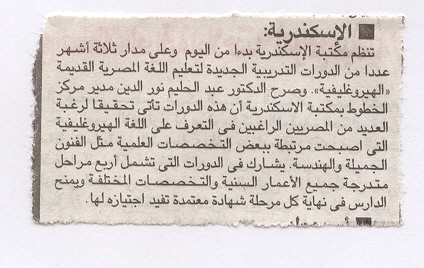 الإسكندرية:
تنظم مكتبة الإسكندرية بدءا من اليوم وعلى مدار ثلاثة أشهر
عددا من الدورات التدريبية الجديدة لتعليم اللغة المصرية القديمة
«الهيروغليفية». وصرح الدكتور عبد الحليم نور الدين مدير مركز
الخطوط بمكتبة الاسكندرية أن هذه الدورات تأتى تحقيقا لرغبة
العديد من المصريين الراغبين فى التعرف على اللغة الهيروغليفية
التى اصبحت مرتبطة ببعض التخصصات العلمية مثل الفنون
الجميلة والهندسة. يشارك فى الدورات التى تشمل أربع مراحل
متدرجة جميع الأعمار السنية والتخصصات المختلفة ويمنح
الدارس فى نهاية كل مرحلة شهادة معتمدة تفيد اجتيازه لها.